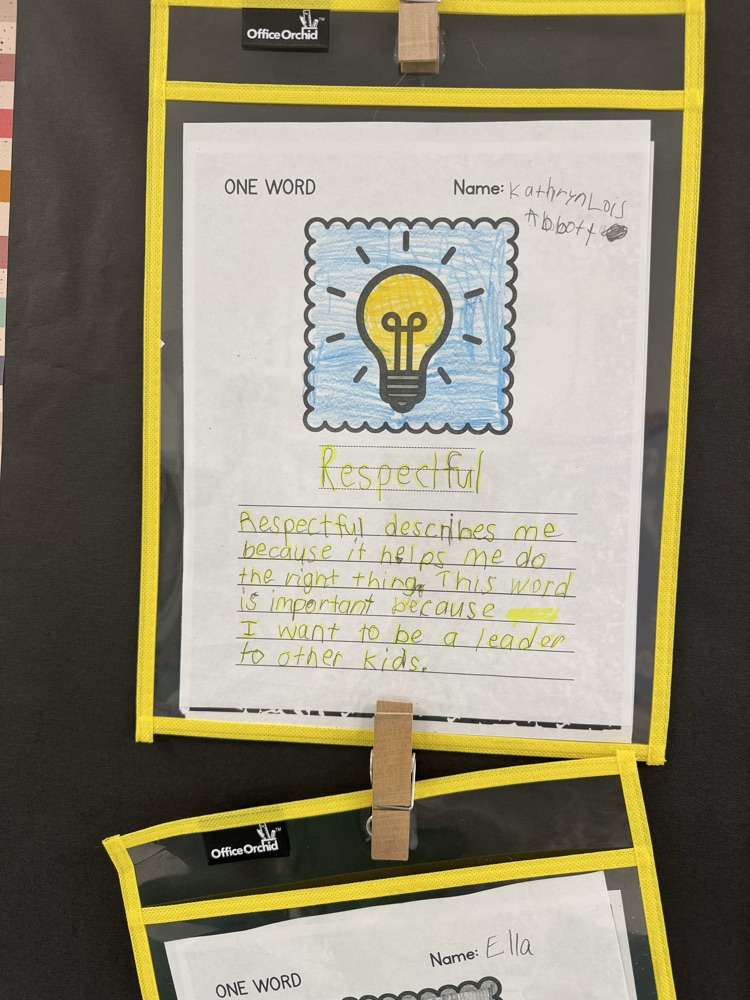 OfficeOrchid™
ONE WORD
Name: KathrynLois
Abbott
Respectful
Respectful describes me
because it helps me do
the right thing. This word
is important because
I want to be a leader
to other kids.
OfficeOrchid™
Name: Ella
ONE WORD